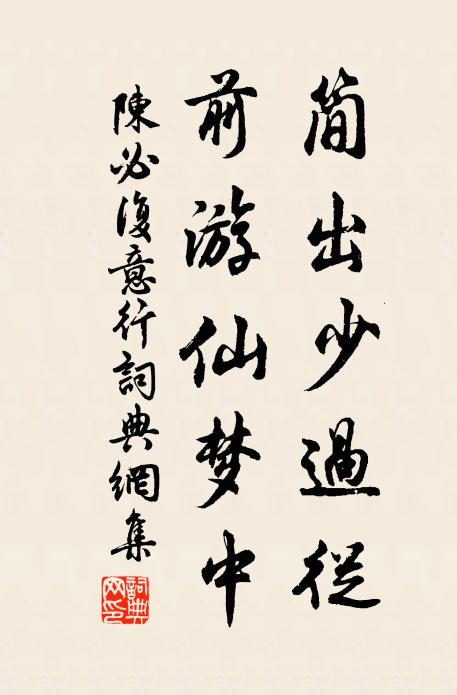 简出少過從
前游仙梦中
陳必復意行詞典網集
詞典网印